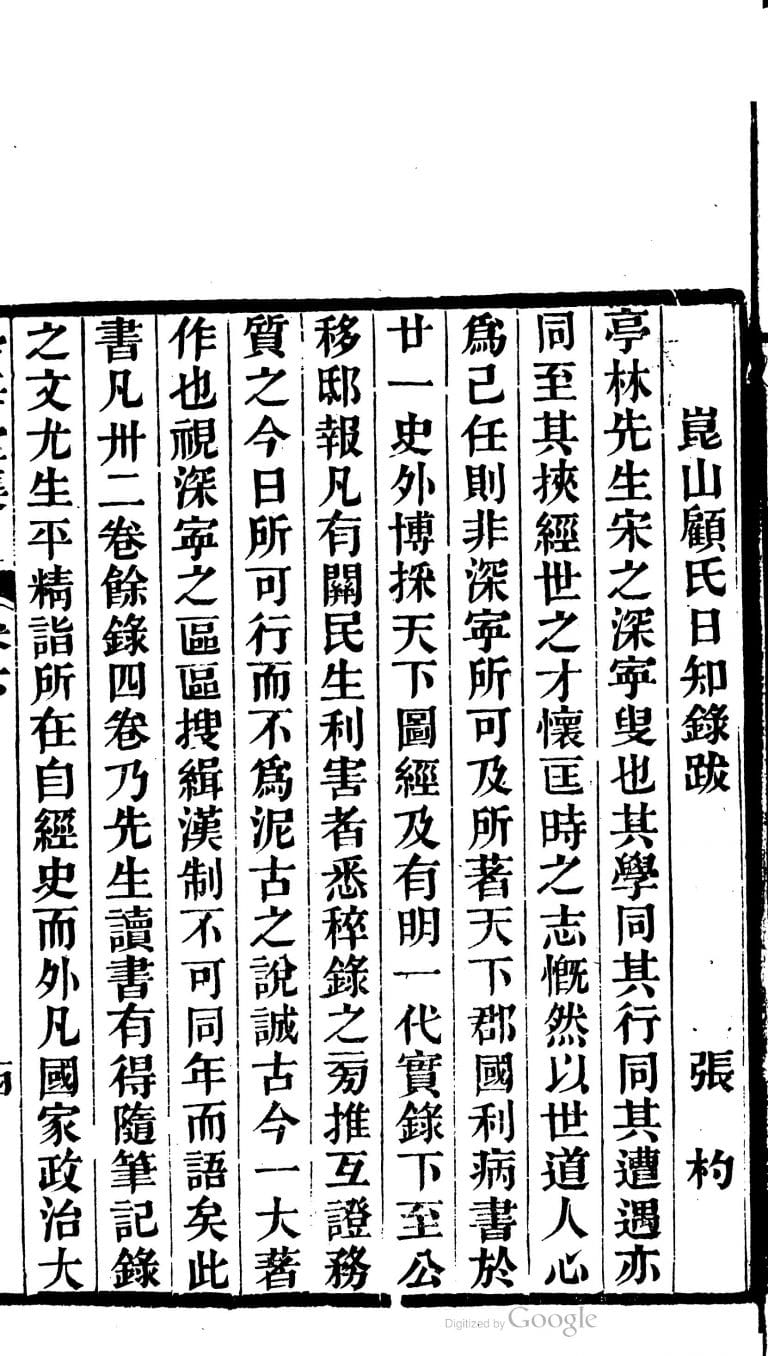 崑山顧氏日知錄跋 張杓
亭林先生宋之深寜叟也其學同其行同其遭遇亦
同至其挾經世之才懷匡時之志慨然以世道人心
爲己任則非深寜所可及所著天下郡國利病書於
廿一史外博採天下圖經及有明一代實錄下至公
移邸報凡有關民生利害者悉稡錄之旁推互證務
質之今日所可行而不爲泥古之說誠古今一大著
作也視深寜之區區搜緝漢制不可同年而語矣此
書凡卅二卷餘錄四卷乃先生讀書有得隨筆記錄
之文尤生平精詣所在自經史而外凡國家政治大
Digitized by Google